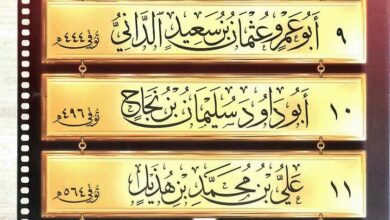 ٩ أبو عمرو عثمان بن سعيد الداني توفي ٤٤٤هـ
١٠ أبو داود سليمان بن نجاح توفي ٤٩٦هـ
١١ علي بن محمد بن هذيل توفي ٥٦٤هـ